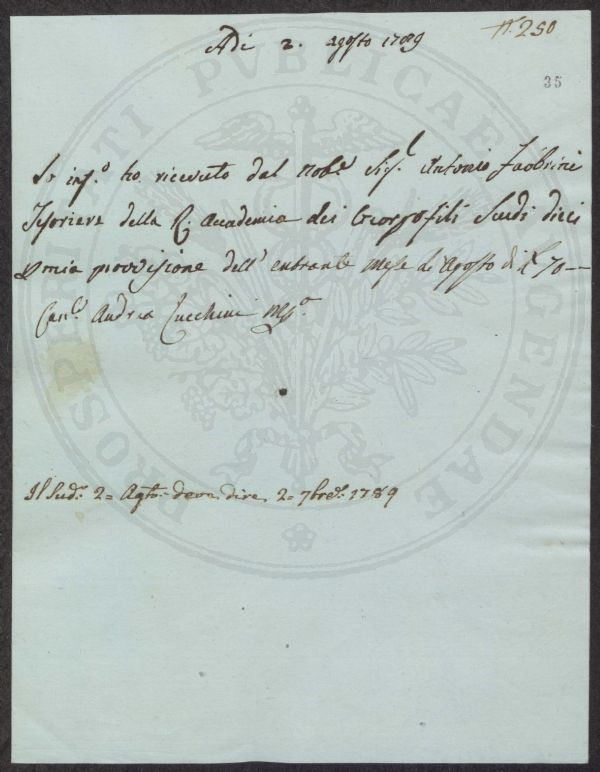 N.° 250
Adì 2. agosto 1789
35
Io inf.° ho ricevuto dal Nobe Sig.r Antonio Fabbrini
Tesoriere della R. Accademia dei Georgofili Scudi dieci
p mia provvisione dell' entrante Mese di Agosto di £ 70—
Can.co Andrea Zucchini Mp.o
Il Sud.° 2= Agto. deve dire 2= 7bre. 1789
PROSPERITATI PVBLICAE AVGENDAE